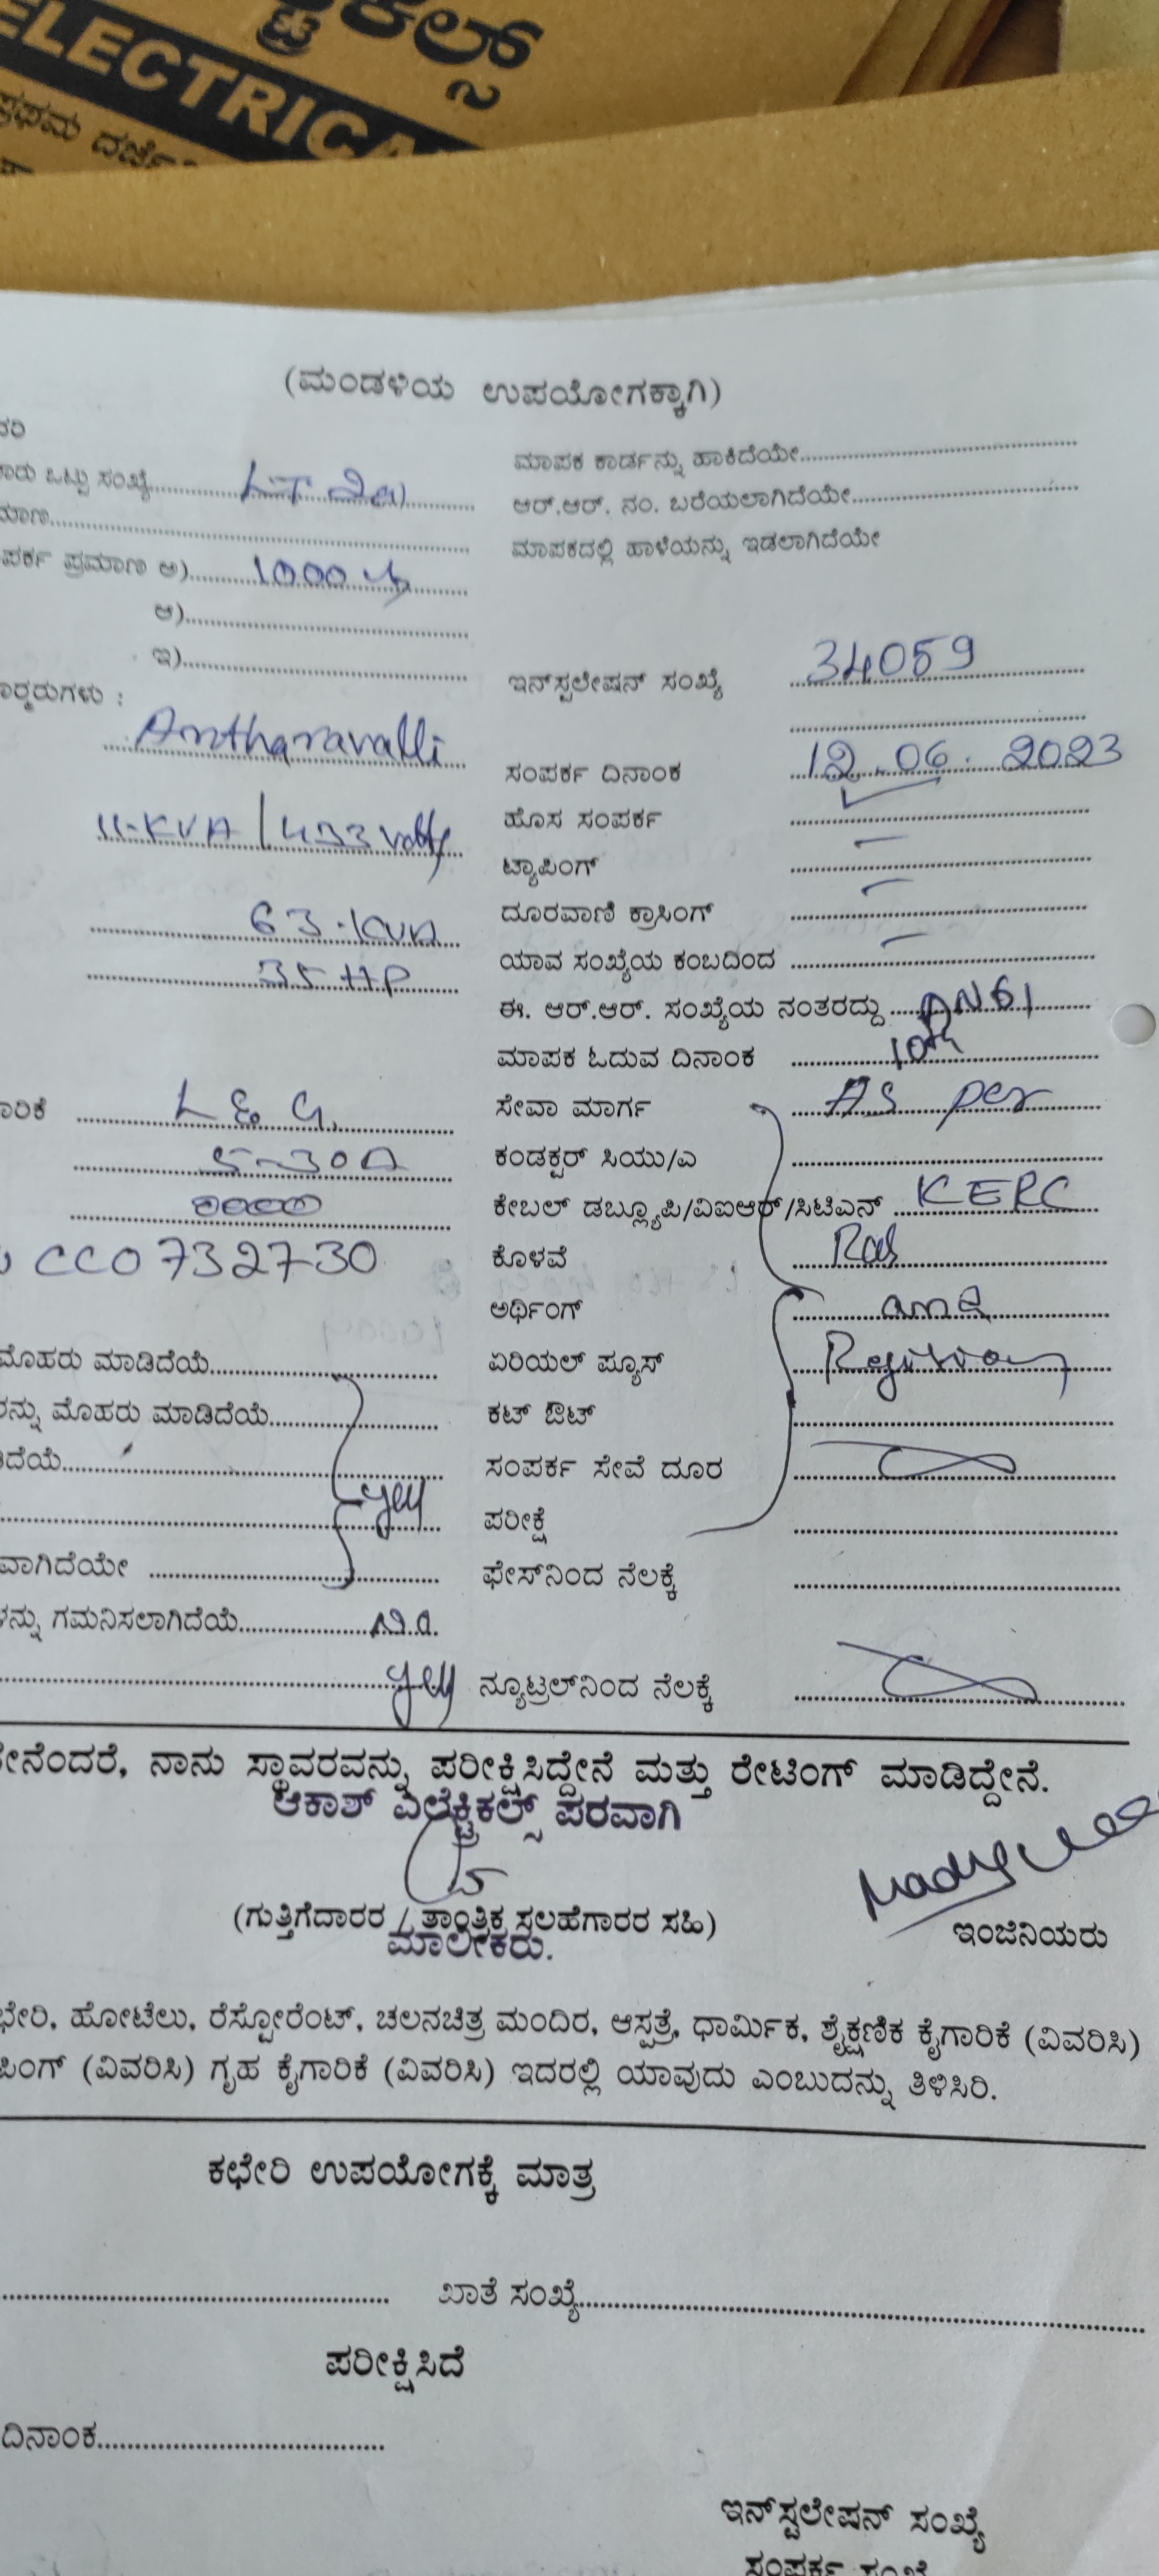 ಟ್ರಿಕಲ್ಸ್
ELECTRICA
ಪ್ರಥಮ ದರ್ಜೆ
(ಮಂಡಳಿಯ ಉಪಯೋಗಕ್ಕಾಗಿ)
ಮಾಪಕ ಕಾರ್ಡನ್ನು ಹಾಕಿದೆಯೇ
ಒಟ್ಟು ಸಂಖ್ಯೆ LT
ಆರ್.ಆರ್. ನಂ. ಬರೆಯಲಾಗಿದೆಯೇ
ಮಾಣ
ಮಾಪಕದಲ್ಲಿ ಹಾಳೆಯನ್ನು ಇಡಲಾಗಿದೆಯೇ
ಪರ್ಕ ಪ್ರಮಾಣ ಅ) 1000
ಆ)
ಇ)
ಇನ್‌ಸ್ಟಲೇಷನ್ ಸಂಖ್ಯೆ 34059
ರುಗಳು :
Antharavalli
ಸಂಪರ್ಕ ದಿನಾಂಕ 12.06.2023
11-KVA / 433 volts
ಹೊಸ ಸಂಪರ್ಕ ✓
ಟ್ಯಾಪಿಂಗ್ –
63.KVA
ದೂರವಾಣಿ ಕ್ರಾಸಿಂಗ್ –
35 HP
ಯಾವ ಸಂಖ್ಯೆಯ ಕಂಬದಿಂದ –
ಈ. ಆರ್.ಆರ್. ಸಂಖ್ಯೆಯ ನಂತರದ್ದು
ಮಾಪಕ ಓದುವ ದಿನಾಂಕ 10th
ಾರಿಕೆ L & G.
ಸೇವಾ ಮಾರ್ಗ As per
5-30A
ಕಂಡಕ್ಟರ್ ಸಿಯು/ಎ
0000
ಕೇಬಲ್ ಡಬ್ಲ್ಯೂಪಿ/ವಿಐಆರ್/ಸಿಟಿಎನ್ KERC
CCO732730
ಕೊಳವೆ
ಅರ್ಥಿಂಗ್ and
ಮೊಹರು ಮಾಡಿದೆಯೆ
ಏರಿಯಲ್ ಫ್ಯೂಸ್
ನ್ನು ಮೊಹರು ಮಾಡಿದೆಯೆ
ಕಟ್ ಔಟ್
ದೆಯೆ
ಸಂಪರ್ಕ ಸೇವೆ ದೂರ
yes
ಪರೀಕ್ಷೆ
ವಾಗಿದೆಯೇ
ಫೇಸ್‌ನಿಂದ ನೆಲಕ್ಕೆ
ನ್ನು ಗಮನಿಸಲಾಗಿದೆಯೆ
yes
ನ್ಯೂಟ್ರಲ್‌ನಿಂದ ನೆಲಕ್ಕೆ
ನೇನೆಂದರೆ, ನಾನು ಸ್ಥಾವರವನ್ನು ಪರೀಕ್ಷಿಸಿದ್ದೇನೆ ಮತ್ತು ರೇಟಿಂಗ್ ಮಾಡಿದ್ದೇನೆ.
ಆಕಾಶ್ ಎಲೆಕ್ಟ್ರಿಕಲ್ಸ್ ಪರವಾಗಿ
(ಗುತ್ತಿಗೆದಾರರ / ತಾಂತ್ರಿಕ ಸಲಹೆಗಾರರ ಸಹಿ)
ಮಾಲೀಕರು.
ಇಂಜಿನಿಯರು
ಛೇರಿ, ಹೋಟೆಲು, ರೆಸ್ಟೋರೆಂಟ್, ಚಲನಚಿತ್ರ ಮಂದಿರ, ಆಸ್ಪತ್ರೆ, ಧಾರ್ಮಿಕ, ಶೈಕ್ಷಣಿಕ ಕೈಗಾರಿಕೆ (ವಿವರಿಸಿ)
ಪಿಂಗ್ (ವಿವರಿಸಿ) ಗೃಹ ಕೈಗಾರಿಕೆ (ವಿವರಿಸಿ) ಇದರಲ್ಲಿ ಯಾವುದು ಎಂಬುದನ್ನು ತಿಳಿಸಿರಿ.
ಕಛೇರಿ ಉಪಯೋಗಕ್ಕೆ ಮಾತ್ರ
ಖಾತೆ ಸಂಖ್ಯೆ
ಪರೀಕ್ಷಿಸಿದೆ
ದಿನಾಂಕ
ಇನ್‌ಸ್ಟಲೇಷನ್ ಸಂಖ್ಯೆ
ಸಂಪರ್ಕ ಸಂಖ್ಯೆ